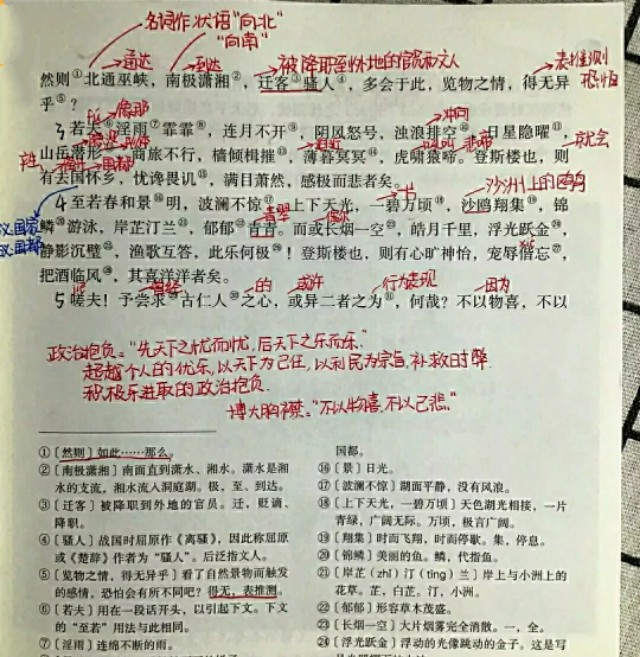 名词作状语"向北"
"向南"
通达
到达
被降职到外地的官员和文人
表推测
恐怕
然则①北通巫峡，南极潇湘②，迁客③骚人④，多会于此，览物之情，得无异
乎⑤？
若夫⑥淫雨⑦霏霏⑧，连月不开⑨，阴风怒号，浊浪排空⑩，日星隐曜⑪，
冲向
山岳潜形⑫，商旅不行，樯倾楫摧⑬，薄暮冥冥⑭，虎啸猿啼。登斯楼也，则
悲啼
就会
国都
有去国怀乡，忧谗畏讥⑮，满目萧然，感极而悲者矣。
沙洲上的鸥鸟
4至若春和景⑯明，波澜不惊⑰，上下天光，一碧万顷⑱，沙鸥翔集⑲，锦
鳞⑳游泳，岸芷汀兰㉑，郁郁㉒青青。而或长烟一空㉓，皓月千里，浮光跃金㉔，
静影沉璧㉕，渔歌互答，此乐何极㉖！登斯楼也，则有心旷神怡，宠辱偕忘㉗，
把酒临风㉘，其喜洋洋者矣。
曾经
的
或许
行为表现
因为
5嗟夫！予尝求㉙古仁人㉚之心，或异二者之为㉛，何哉？不以物喜，不以
政治抱负："先天下之忧而忧，后天下之乐而乐."
超越个人的忧乐，以天下为己任，以利民为宗旨，补救时弊.
积极乐进取的政治抱负.
博大胸襟："不以物喜，不以己悲."
①［然则］如此……那么。
②［南极潇湘］南面直到潇水、湘水。潇水是湘
水的支流，湘水流入洞庭湖。极，至、到达。
③［迁客］被降职到外地的官员。迁，贬谪、
降职。
④［骚人］战国时屈原作《离骚》，因此称屈原
或《楚辞》作者为"骚人"。后泛指文人。
⑤［览物之情，得无异乎］看了自然景物而触发
的感情，恐怕会有所不同吧？得无，表推测。
⑥［若夫］用在一段话开头，以引起下文。下文
的"至若"用法与此相同。
⑦［淫雨］连绵不断的雨。
国都。
⑯［景］日光。
⑰［波澜不惊］湖面平静，没有风浪。
⑱［上下天光，一碧万顷］天色湖光相接，一片
青绿，广阔无际。万顷，极言广阔。
⑲［翔集］时而飞翔，时而停歇。集，停息。
⑳［锦鳞］美丽的鱼。鳞，代指鱼。
㉑［岸芷（zhǐ）汀（tīng）兰］岸上与小洲上的
花草。芷，白芷。汀，小洲。
㉒［郁郁］形容草木茂盛。
㉓［长烟一空］大片烟雾完全消散。一，全。
㉔［浮光跃金］浮动的光像跳动的金子。这是写